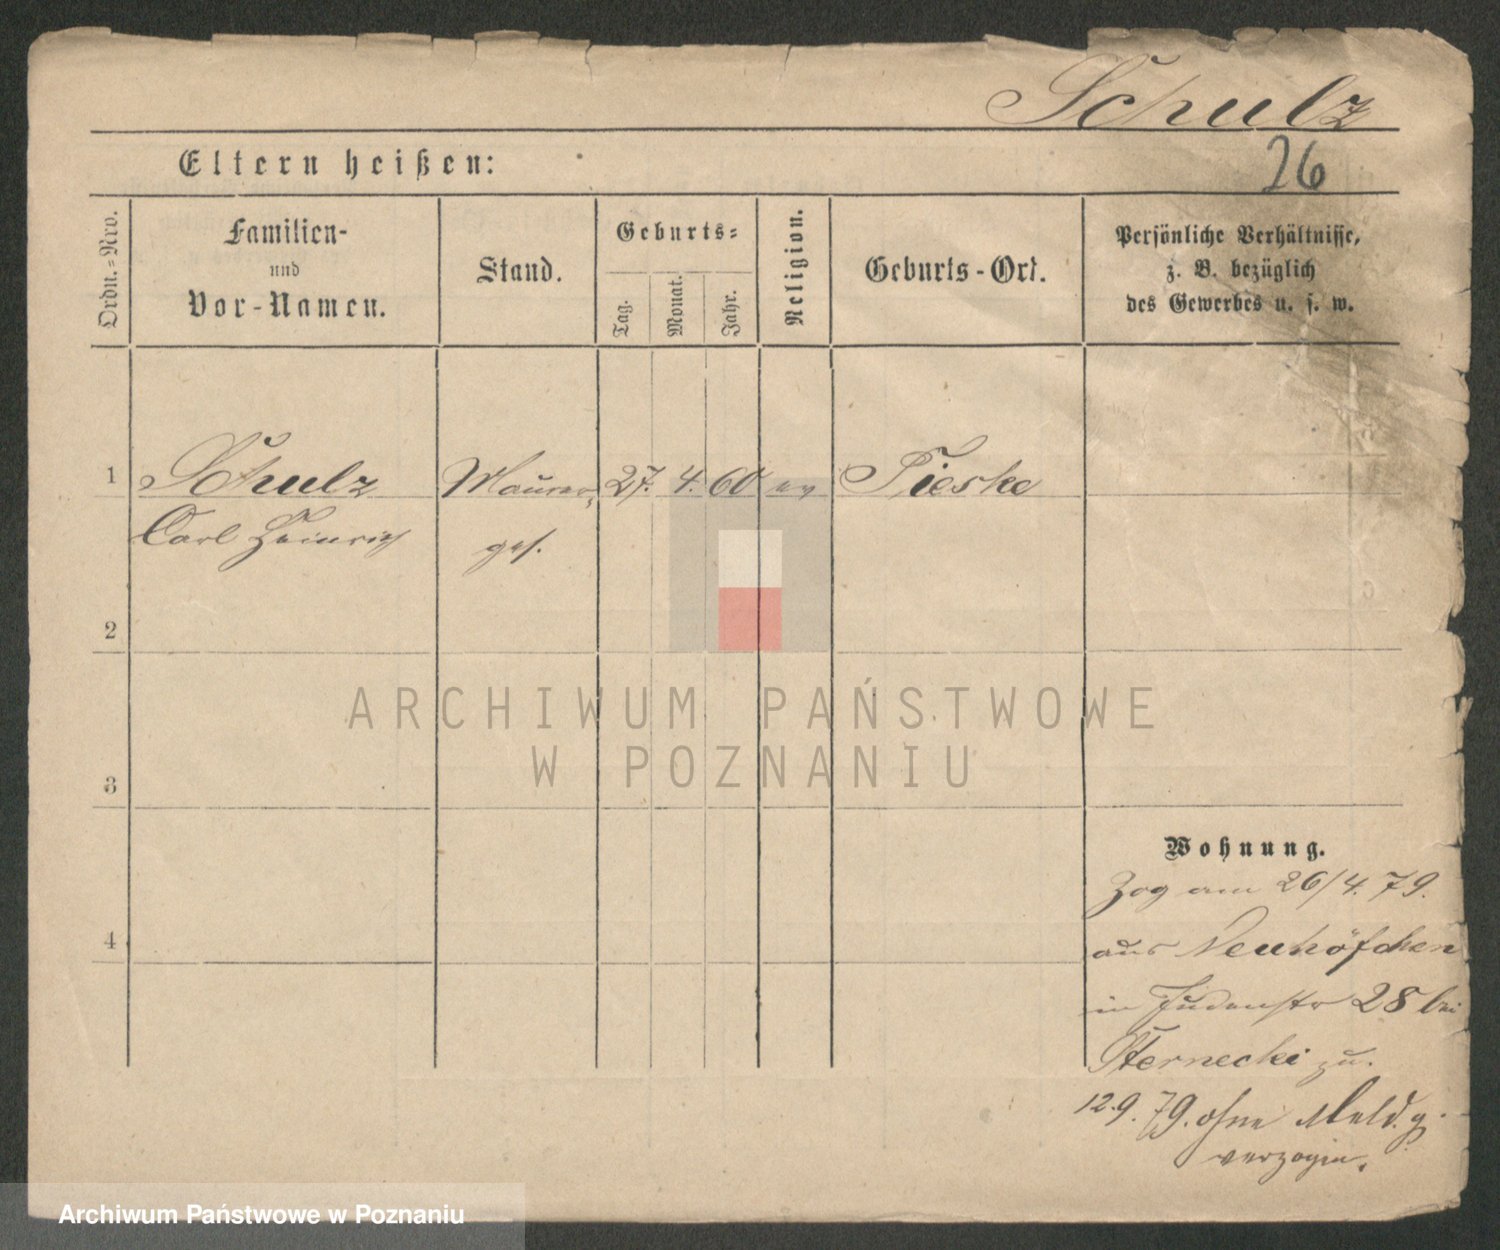 Schulz
26
Eltern heißen:
Ordn.-Nro.
Familien-
und
Vor-Namen.
Stand.
Geburts-
Tag.
Monat.
Jahr.
Religion.
Geburts-Ort.
Persönliche Verhältnisse,
z. B. bezüglich
des Gewerbes u. s. w.
1 Schulz Maurer- 27. 4. 60 ev Pieske
Carl Heinrich ges.
2
ARCHIWUM PAŃSTWOWE
W POZNANIU
3
Wohnung.
Zog am 26/4. 79.
4
aus Neuhöfchen
in Judenstr 28 bei
Sternecki zu.
12.9.79. ohne Meld.g.
verzogen.
Archiwum Państwowe w Poznaniu